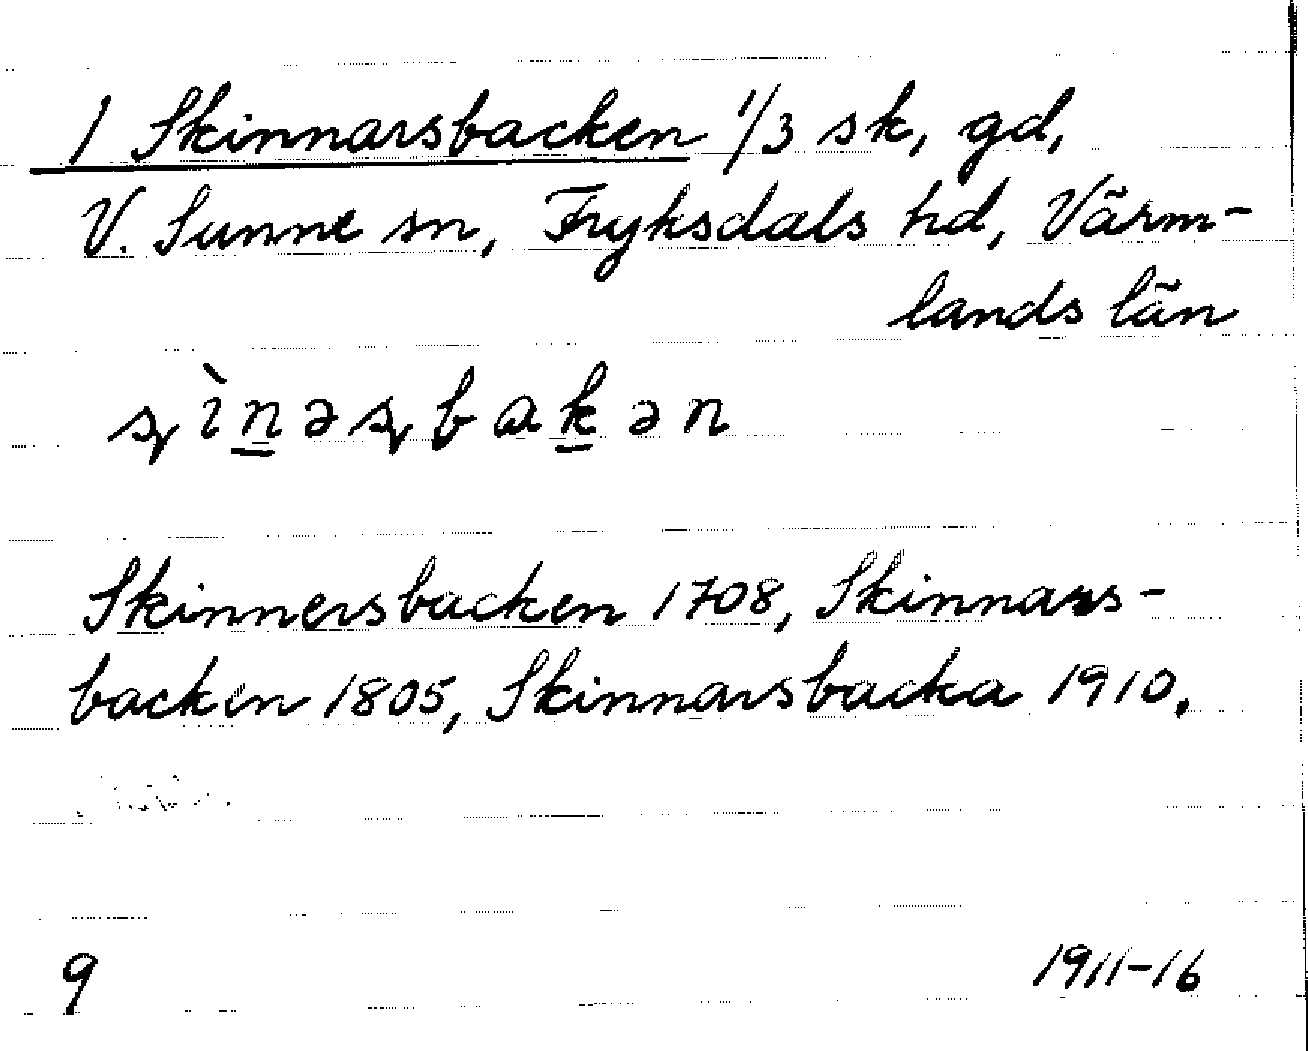 1 Skinnarsbacken 1/3 sk, gd,
V. Sunne sn, Fryksdals hd, Värm-
lands län
ʂìn̲əʂbak̲ən
Skinnersbacken 1708, Skinnars-
backen 1805, Skinnarsbacka 1910.
9
1911-16